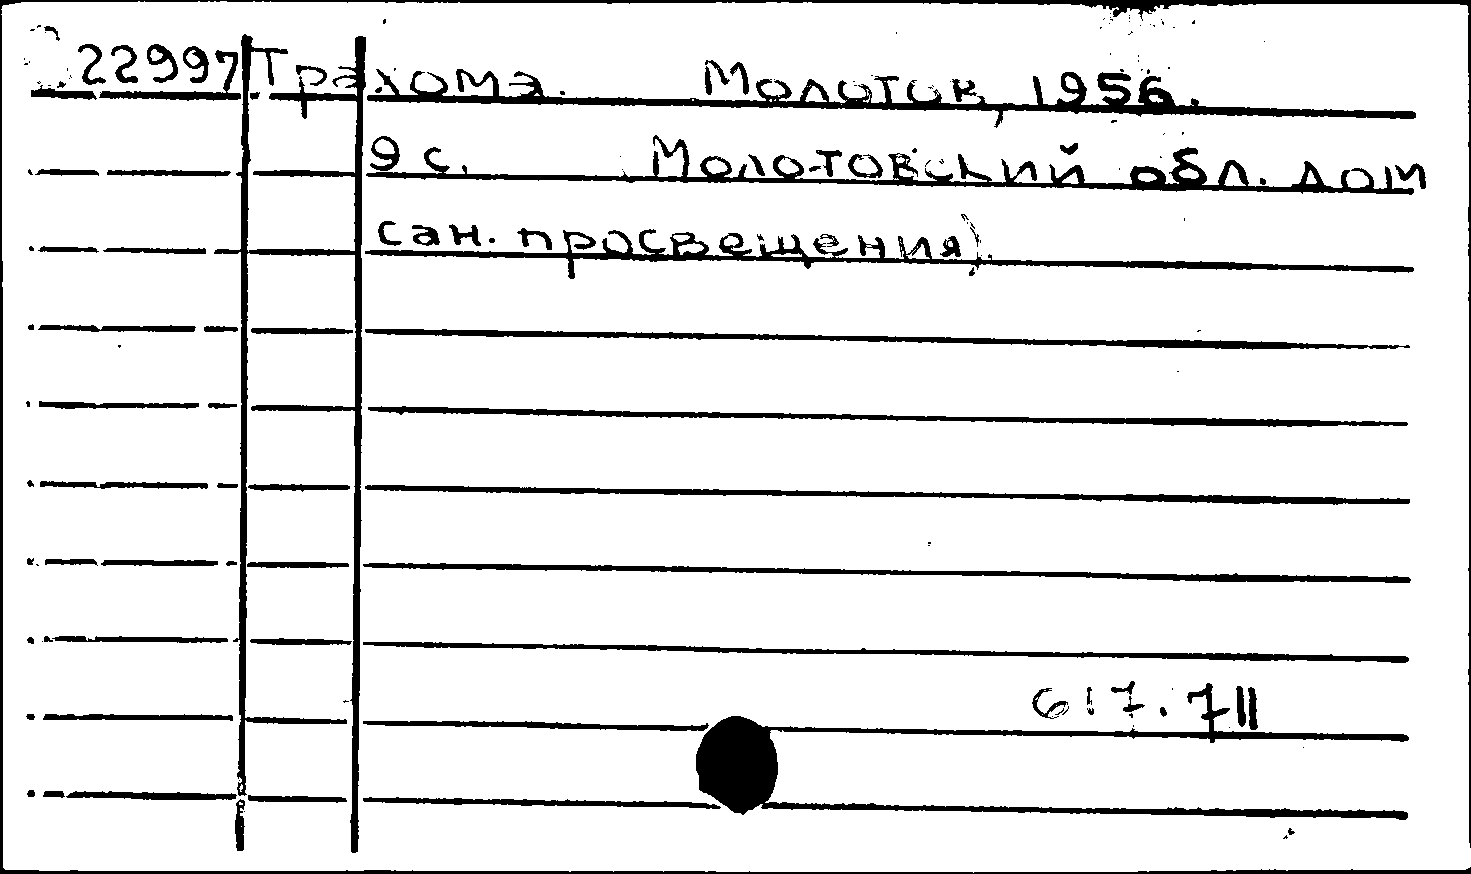 22997 Трахома. Молотов, 1956.
9 с. Молотовский обл. дом
сан. просвещения).
617.711